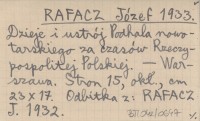 RAFACZ Józef 1933.
Dzieje i ustrój Podhala nowo-
tarskiego za czasów Rzeczy-
pospolitej Polskiej. — War-
szawa. Stron 15, okł., cm
23 x 17. Odbitka z: RAFACZ
J. 1932.